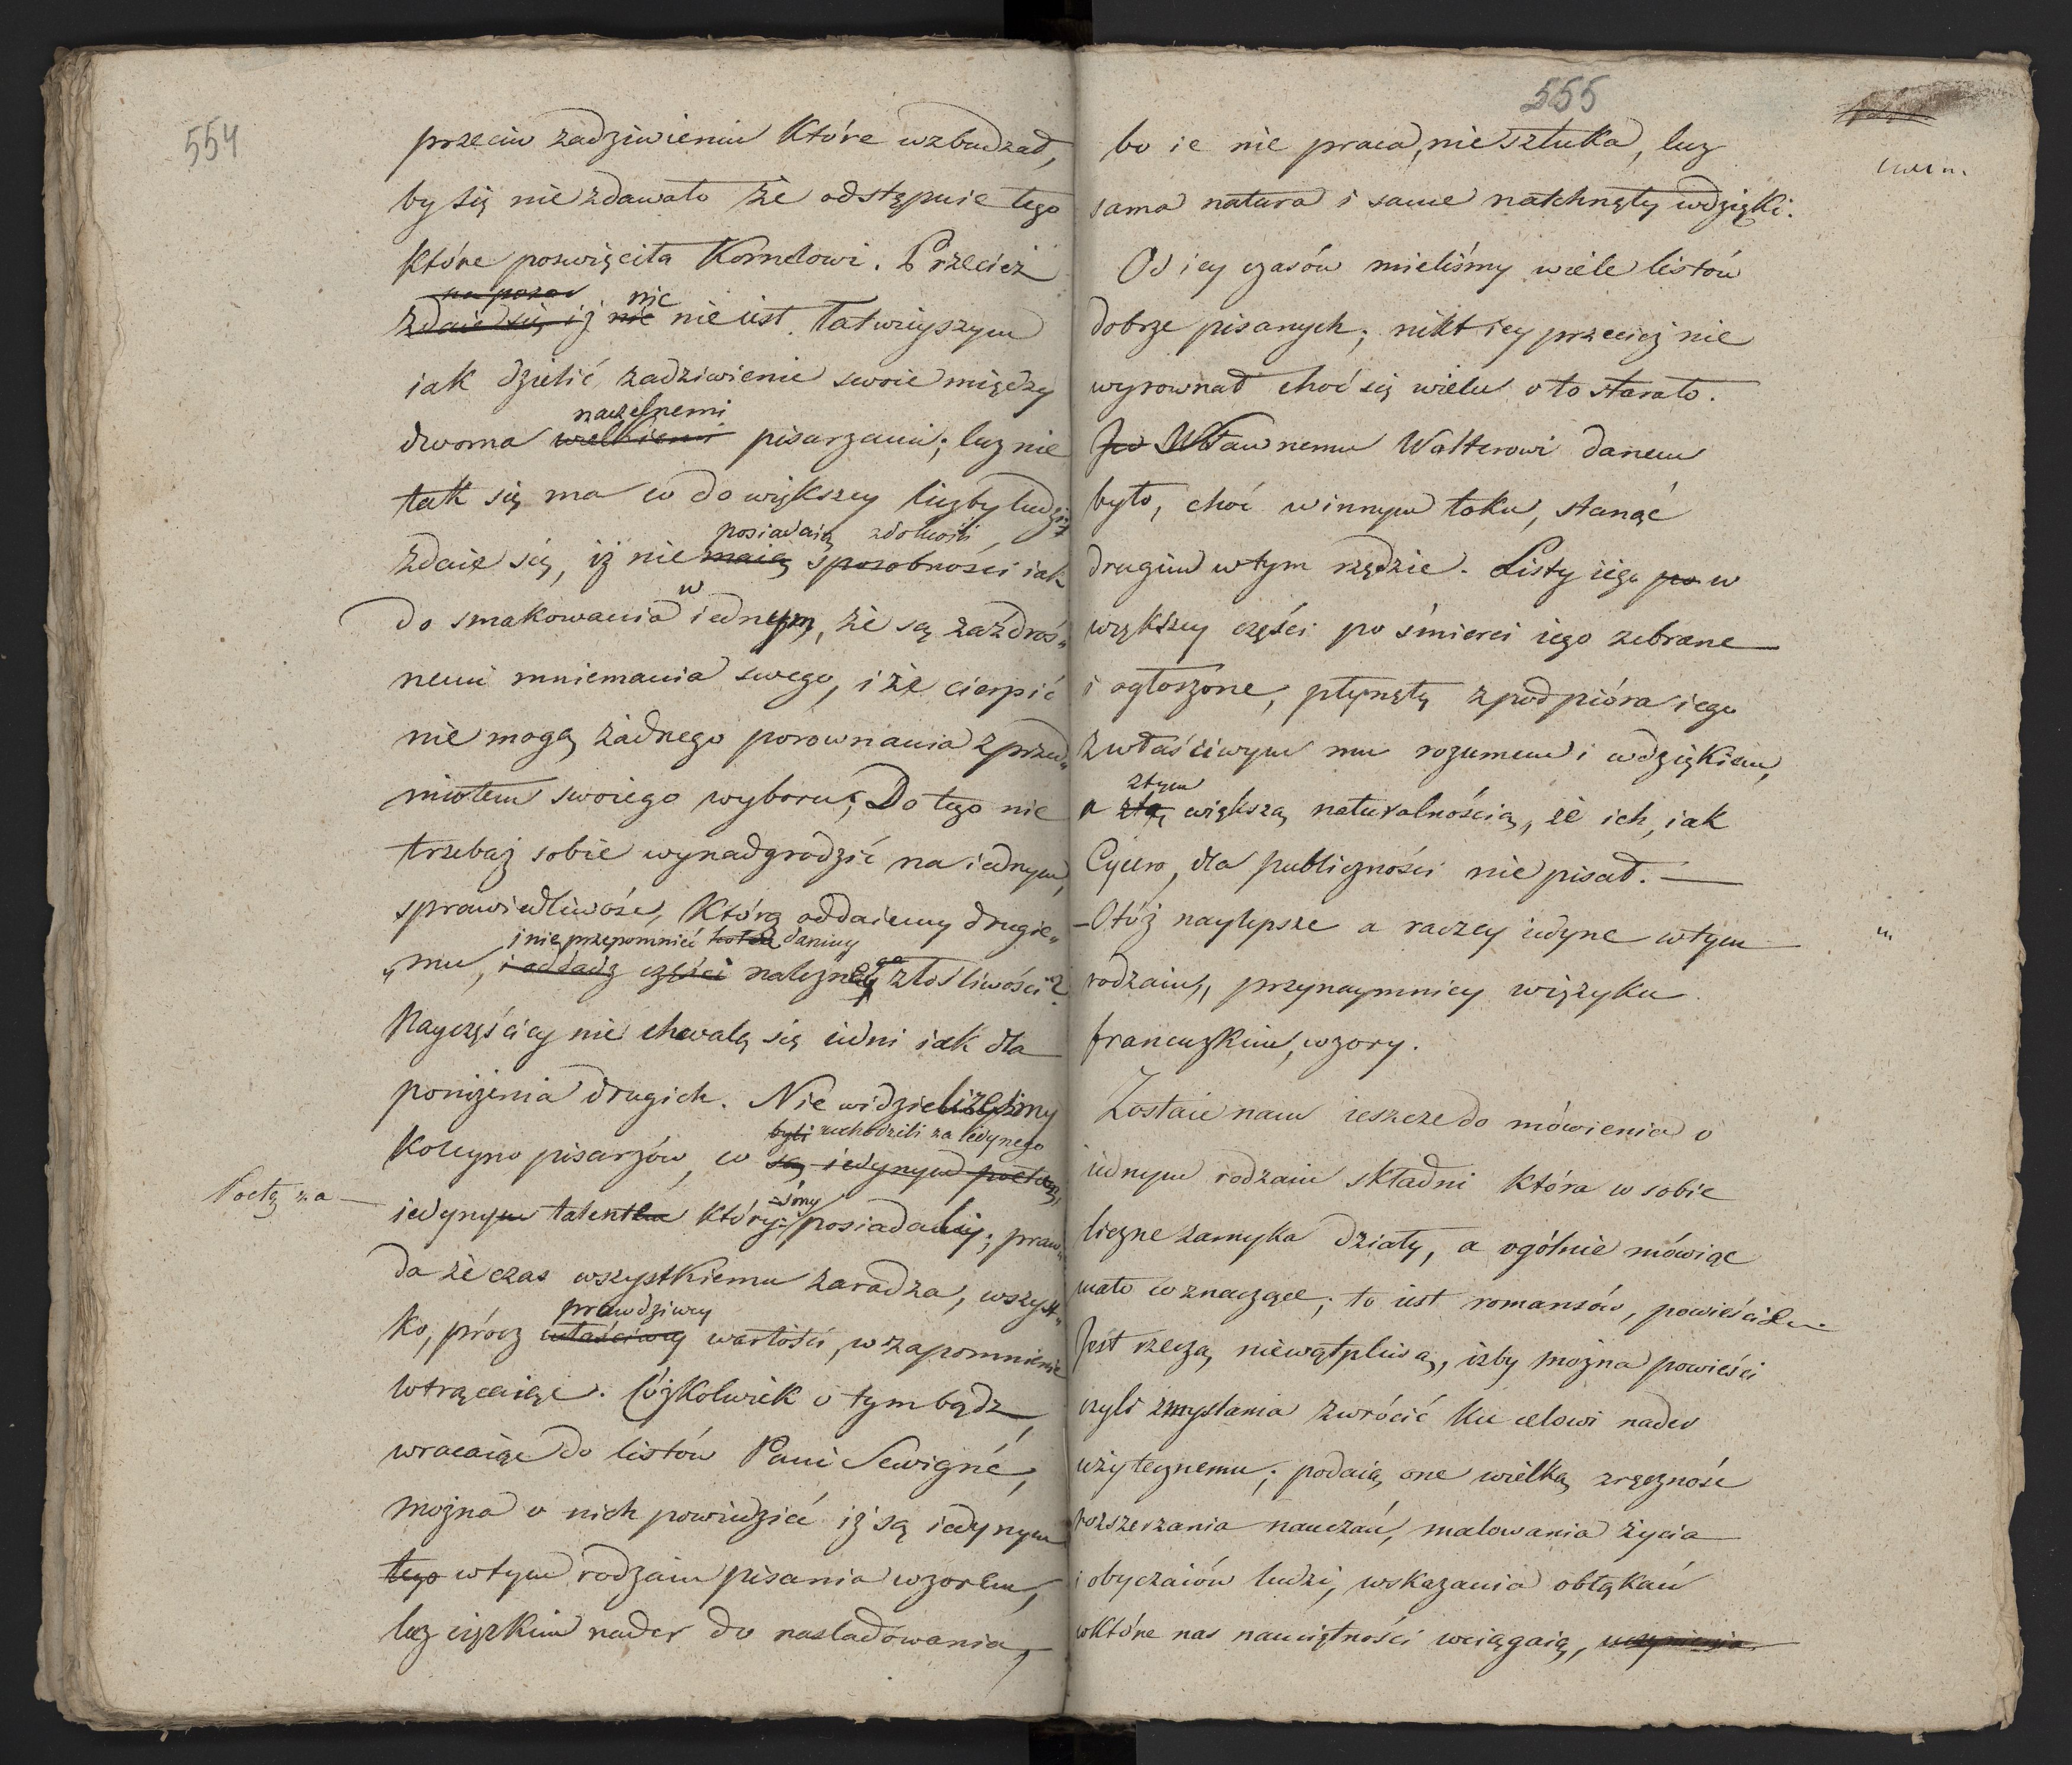 554
przeciw zadziwieniu które wzbudzał,
by się nie zdawało że odstępuie tego
które poswięciła Kornelowi. Przecież
na pozor nic
zdaie się iż nic nie iest łatwieyszym
iak dzielić zadziwienie swoie między
naczelnemi
dwoma wielkiemi pisarzami; lecz nie
tak się ma co do większey liczby ludzi;
posiadaią zdolności
zdaie się, iż nie maią sposobności iak
w
do smakowania iednym, że są zazdros„
nemi mniemania swego, i że cierpić
nie mogą żadnego porownania z przed„
miotem swoiego wyboru; Do tego nie
trzebaż sobie wynadgrodzić na iednym,
sprawiedliwość, którą oddaiemy drugie„
i nie przepomnieć hołdu daniny
„mu, i oddadz części należney złośliwości?
Nayczęściey nie chwalą się iedni iak dla
poniżenia drugich. Nie widzieliżeśmy
byli uchodzili za iedynego
Koleyno pisarzów, co są iedynym poetą,
Poetę za
-śmy
iedynym talentem który posiadali; praw„
da że czas wszystkiemu zaradza, wszyst„
prawdziwey
ko, prócz właściwey wartości, w zapomnienie
wtrącaiąc. Cóżkolwiek o tym bądz,
wracaiąc do listów Pani Sewigné,
można o nich powiedzieć iż są iedynym
tego w tym rodzaiu pisania wzorem,
lecz ciężkim nader do nasladowania,
555
bo ie nie praca, nie sztuka, lecz
sama natura i same natchnęły wdzięki.
Od iey czasów mieliśmy wiele listów
dobrze pisanych; nikt iey przecież nie
wyrownał choć się wielu o to starało.
Sławnemu Walterowi danem
było, choć w innym toku, stanąć
drugim w tym rzędzie. Listy iego po w
większey części po śmierci iego zebrane
i ogłoszone, płynęły z pod pióra iego
z właściwym mu rozumem i wdziękiem,
z tym
a z tą większą naturalnością, że ich, iak
Cycero, dla publiczności nie pisał. —
- Otóż naylepsze a raczey iedyne w tym
rodzaiu, przynaymniey w ięzyku
francuzkim, wzory.
Zostaie nam ieszcze do mówienia o
iednym rodzaiu składni która w sobie
liczne zamyka działy, a ogólnie mówiąc
mało co znaczące; to iest romansów, powieści &c.
Jest rzeczą niewątpliwą, iżby można powieści
czyli zmyslania zwrócić ku celowi nader
użytecznemu; podaią one wielką zręczność
rozszerzania nauczań, malowania życia
i obyczaiów ludzi, wskazania obłąkań
w które nas namiętności wciągaią, uczynienia